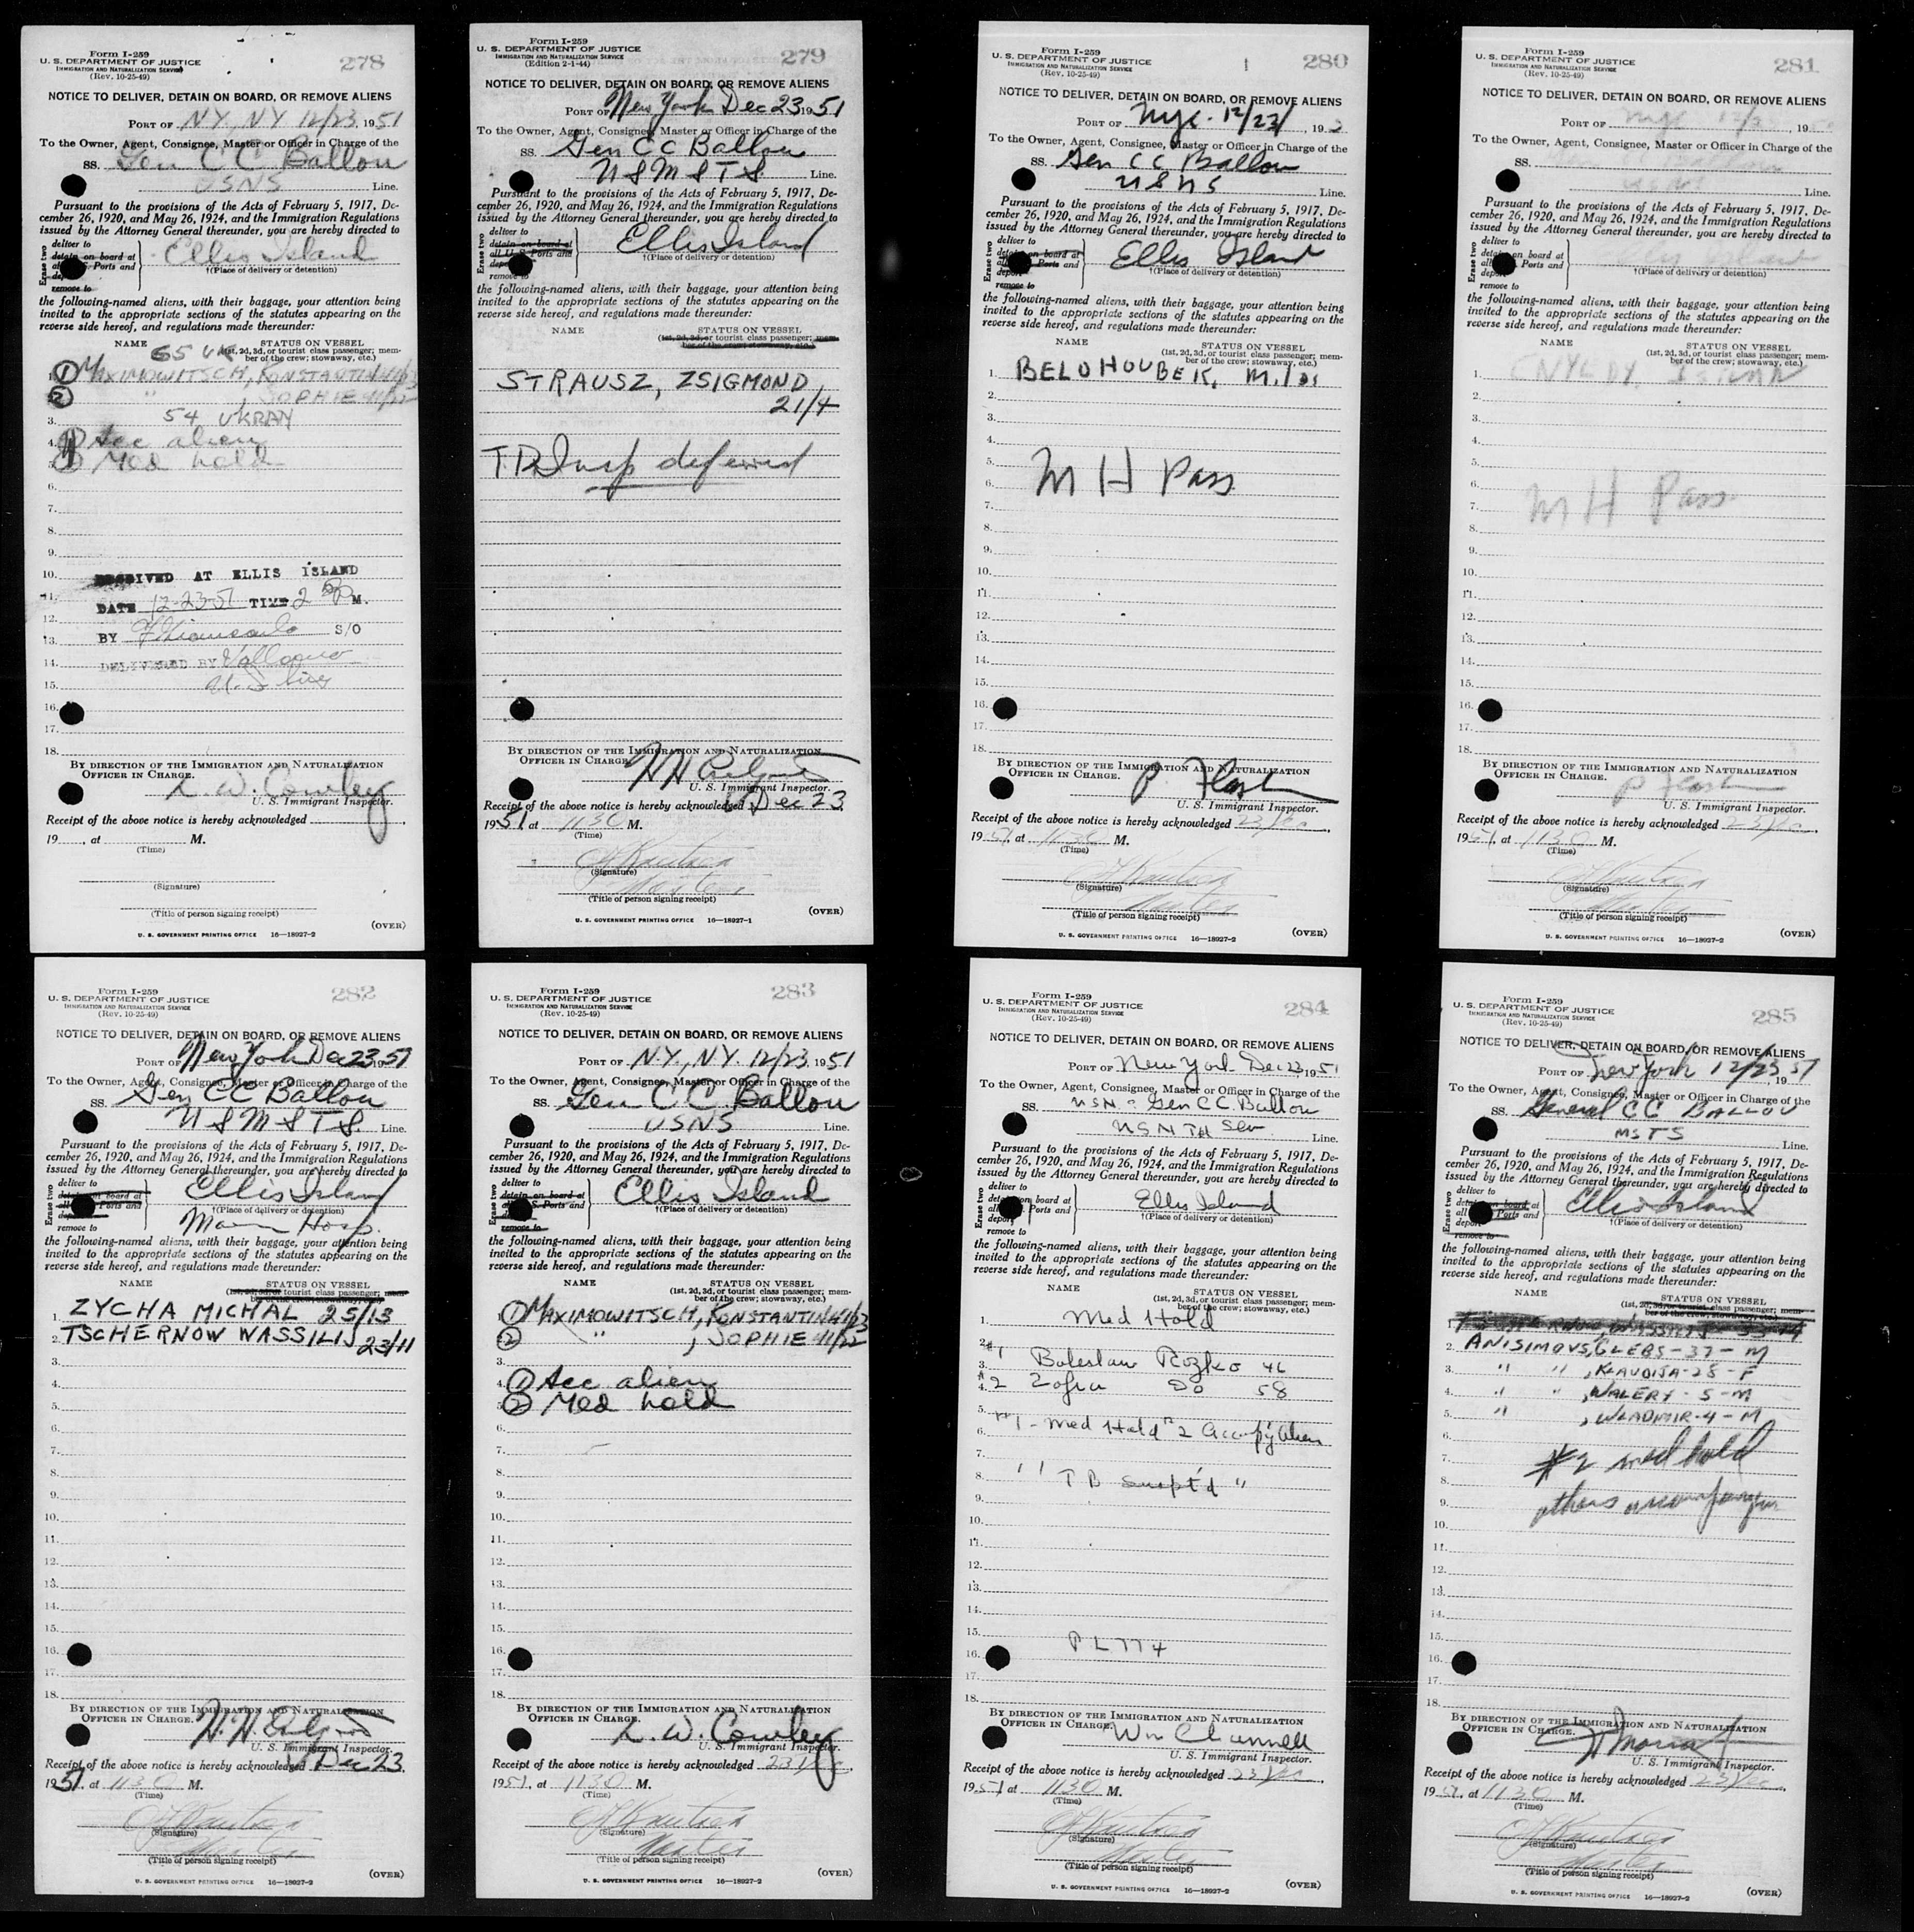 Form I-259
U. S. DEPARTMENT OF JUSTICE
IMMIGRATION AND NATURALIZATION SERVICE
(Rev. 10-25-49)
278
NOTICE TO DELIVER, DETAIN ON BOARD, OR REMOVE ALIENS
PORT OF N.Y., N.Y. 12/23, 1951
To the Owner, Agent, Consignee, Master or Officer in Charge of the
SS. Gen C C Ballou
USNS Line.
Pursuant to the provisions of the Acts of February 5, 1917, De-
cember 26, 1920, and May 26, 1924, and the Immigration Regulations
issued by the Attorney General thereunder, you are hereby directed to
Erase two
deliver to
detain on board at
Ports and
remove to
Ellis Island
†(Place of delivery or detention)
the following-named aliens, with their baggage, your attention being
invited to the appropriate sections of the statutes appearing on the
reverse side hereof, and regulations made thereunder:
NAME
STATUS ON VESSEL
(1st, 2d, 3d, or tourist class passenger; mem-
ber of the crew; stowaway, etc.)
65 UK
1 MAXIMOWITSCH, KONSTANTIN 41/23
2 " , SOPHIE 41/22
3. 54 UKRAN
4. Acc alien
5. 2 Med hold
6.
7.
8.
9.
10. RECEIVED AT ELLIS ISLAND
11. DATE 12-23-51 TIME 2 50 P M.
12.
13. BY S/O
14. DELIVERED BY
15.
16.
17.
18.
BY DIRECTION OF THE IMMIGRATION AND NATURALIZATION
OFFICER IN CHARGE.
L. W. Cowley
U. S. Immigrant Inspector.
Receipt of the above notice is hereby acknowledged
19 , at M.
(Time)
(Signature)
(Title of person signing receipt)
(OVER)
U. S. GOVERNMENT PRINTING OFFICE 16—18927-2
Form I-259
U. S. DEPARTMENT OF JUSTICE
IMMIGRATION AND NATURALIZATION SERVICE
(Edition 2-1-44)
279
NOTICE TO DELIVER, DETAIN ON BOARD, OR REMOVE ALIENS
PORT OF New York Dec 23 1951
To the Owner, Agent, Consignee, Master or Officer in Charge of the
SS. Gen C C Ballou
U S M S T S
Pursuant to the provisions of the Acts of February 5, 1917, De-
cember 26, 1920, and May 26, 1924, and the Immigration Regulations
issued by the Attorney General thereunder, you are hereby directed to
Erase two
deliver to
detain on board at
all U. S. Ports and
remove to
Ellis Island
†(Place of delivery or detention)
the following-named aliens, with their baggage, your attention being
invited to the appropriate sections of the statutes appearing on the
reverse side hereof, and regulations made thereunder:
NAME
STATUS ON VESSEL
(1st, 2d, 3d, or tourist class passenger; mem-
ber of the crew; stowaway, etc.)
STRAUSZ, ZSIGMOND,
21/4
Insp deferred
BY DIRECTION OF THE IMMIGRATION AND NATURALIZATION
OFFICER IN CHARGE.
U. S. Immigrant Inspector.
Receipt of the above notice is hereby acknowledged Dec 23
1951 at 1130 M.
(Time)
(Signature)
Master
(Title of person signing receipt)
(OVER)
U. S. GOVERNMENT PRINTING OFFICE 16—18927-1
Form I-259
U. S. DEPARTMENT OF JUSTICE
IMMIGRATION AND NATURALIZATION SERVICE
(Rev. 10-25-49)
280
NOTICE TO DELIVER, DETAIN ON BOARD, OR REMOVE ALIENS
PORT OF Nyc. 12/23/, 19
To the Owner, Agent, Consignee, Master or Officer in Charge of the
SS. Gen C C Ballou
USNS Line.
Pursuant to the provisions of the Acts of February 5, 1917, De-
cember 26, 1920, and May 26, 1924, and the Immigration Regulations
issued by the Attorney General thereunder, you are hereby directed to
Erase two
deliver to
detain on board at
all Ports and
deport
remove to
Ellis Island
†(Place of delivery or detention)
the following-named aliens, with their baggage, your attention being
invited to the appropriate sections of the statutes appearing on the
reverse side hereof, and regulations made thereunder:
NAME
STATUS ON VESSEL
(1st, 2d, 3d, or tourist class passenger; mem-
ber of the crew; stowaway, etc.)
1. BELOHOUBEK, Milos
2.
3.
4.
5.
6. M H Pass
7.
8.
9.
10.
11.
12.
13.
14.
15.
16.
17.
18.
BY DIRECTION OF THE IMMIGRATION AND NATURALIZATION
OFFICER IN CHARGE.
P
U. S. Immigrant Inspector.
Receipt of the above notice is hereby acknowledged 23 Dec,
1951, at 1130 M.
(Time)
(Signature)
Master
(Title of person signing receipt)
(OVER)
U. S. GOVERNMENT PRINTING OFFICE 16—18927-2
Form I-259
U. S. DEPARTMENT OF JUSTICE
IMMIGRATION AND NATURALIZATION SERVICE
(Rev. 10-25-49)
281
NOTICE TO DELIVER, DETAIN ON BOARD, OR REMOVE ALIENS
PORT OF Nyc 12/2 , 19
To the Owner, Agent, Consignee, Master or Officer in Charge of the
SS.
Line.
Pursuant to the provisions of the Acts of February 5, 1917, De-
cember 26, 1920, and May 26, 1924, and the Immigration Regulations
issued by the Attorney General thereunder, you are hereby directed to
Erase two
deliver to
detain on board at
all Ports and
deport
remove to
†(Place of delivery or detention)
the following-named aliens, with their baggage, your attention being
invited to the appropriate sections of the statutes appearing on the
reverse side hereof, and regulations made thereunder:
NAME
STATUS ON VESSEL
(1st, 2d, 3d, or tourist class passenger; mem-
ber of the crew; stowaway, etc.)
1.
2.
3.
4.
5.
6. M H Pass
7.
8.
9.
10.
11.
12.
13.
14.
15.
16.
17.
18.
BY DIRECTION OF THE IMMIGRATION AND NATURALIZATION
OFFICER IN CHARGE.
P
U. S. Immigrant Inspector.
Receipt of the above notice is hereby acknowledged 23 Dec,
1951, at 1130 M.
(Time)
(Signature)
Master
(Title of person signing receipt)
(OVER)
U. S. GOVERNMENT PRINTING OFFICE 16—18927-2
Form I-259
U. S. DEPARTMENT OF JUSTICE
IMMIGRATION AND NATURALIZATION SERVICE
(Rev. 10-25-49)
282
NOTICE TO DELIVER, DETAIN ON BOARD, OR REMOVE ALIENS
PORT OF New York Dec 23 51
To the Owner, Agent, Consignee, Master or Officer in Charge of the
SS. Gen CC Ballou
U S M S T S. Line.
Pursuant to the provisions of the Acts of February 5, 1917, De-
cember 26, 1920, and May 26, 1924, and the Immigration Regulations
issued by the Attorney General thereunder, you are hereby directed to
Erase two
deliver to
detain on board at
Ports and
remove to
Ellis Island
†(Place of delivery or detention)
Hosp.
the following-named aliens, with their baggage, your attention being
invited to the appropriate sections of the statutes appearing on the
reverse side hereof, and regulations made thereunder:
NAME
STATUS ON VESSEL
(1st, 2d, 3d, or tourist class passenger; mem-
ber of the crew; stowaway, etc.)
1. ZYCHA MICHAL 25/13
2. TSCHERNOW WASSILIJ 23/11
3.
4.
5.
6.
7.
8.
9.
10.
11.
12.
13.
14.
15.
16.
17.
18.
BY DIRECTION OF THE IMMIGRATION AND NATURALIZATION
OFFICER IN CHARGE.
U. S. Immigrant Inspector.
Receipt of the above notice is hereby acknowledged Dec 23
1951, at 1130 M.
(Time)
(Signature)
Master
(Title of person signing receipt)
(OVER)
U. S. GOVERNMENT PRINTING OFFICE 16—18927-2
Form I-259
U. S. DEPARTMENT OF JUSTICE
IMMIGRATION AND NATURALIZATION SERVICE
(Rev. 10-25-49)
283
NOTICE TO DELIVER, DETAIN ON BOARD, OR REMOVE ALIENS
PORT OF N.Y., N.Y. 12/23, 1951
To the Owner, Agent, Consignee, Master or Officer in Charge of the
SS. Gen C C Ballou
USNS Line.
Pursuant to the provisions of the Acts of February 5, 1917, De-
cember 26, 1920, and May 26, 1924, and the Immigration Regulations
issued by the Attorney General thereunder, you are hereby directed to
Erase two
deliver to
detain on board at
S. Ports and
remove to
Ellis Island
†(Place of delivery or detention)
the following-named aliens, with their baggage, your attention being
invited to the appropriate sections of the statutes appearing on the
reverse side hereof, and regulations made thereunder:
NAME
STATUS ON VESSEL
(1st, 2d, 3d, or tourist class passenger; mem-
ber of the crew; stowaway, etc.)
1 MAXIMOWITSCH, KONSTANTIN 41/23
2 " , SOPHIE 41/22
3.
4. 1 Acc alien
5. 2 Med hold
6.
7.
8.
9.
10.
11.
12.
13.
14.
15.
16.
17.
18.
BY DIRECTION OF THE IMMIGRATION AND NATURALIZATION
OFFICER IN CHARGE.
L. W. Cowley
U. S. Immigrant Inspector.
Receipt of the above notice is hereby acknowledged 23 Dec,
1951, at 1130 M.
(Time)
(Signature)
Master
(Title of person signing receipt)
(OVER)
U. S. GOVERNMENT PRINTING OFFICE 16—18927-2
Form I-259
U. S. DEPARTMENT OF JUSTICE
IMMIGRATION AND NATURALIZATION SERVICE
(Rev. 10-25-49)
284
NOTICE TO DELIVER, DETAIN ON BOARD, OR REMOVE ALIENS
PORT OF New York Dec 23, 1951
To the Owner, Agent, Consignee, Master or Officer in Charge of the
SS. USNS Gen C C Ballou
Line.
Pursuant to the provisions of the Acts of February 5, 1917, De-
cember 26, 1920, and May 26, 1924, and the Immigration Regulations
issued by the Attorney General thereunder, you are hereby directed to
Erase two
deliver to
detain on board at
all Ports and
deport
remove to
Ellis Island
†(Place of delivery or detention)
the following-named aliens, with their baggage, your attention being
invited to the appropriate sections of the statutes appearing on the
reverse side hereof, and regulations made thereunder:
NAME
STATUS ON VESSEL
(1st, 2d, 3d, or tourist class passenger; mem-
ber of the crew; stowaway, etc.)
1. Med Hold
2.
3. #1 Boleslaw Rozko 46
4. #2 Zofia Do 58
5.
6. #1 - Med Hold #2 Accompy'g Alien
7.
8. " T B susp't'd "
9.
10.
11.
12.
13.
14.
15. P L 774
16.
17.
18.
BY DIRECTION OF THE IMMIGRATION AND NATURALIZATION
OFFICER IN CHARGE.
Wm
U. S. Immigrant Inspector.
Receipt of the above notice is hereby acknowledged 23 Dec,
1951, at 1130 M.
(Time)
(Signature)
Master
(Title of person signing receipt)
(OVER)
U. S. GOVERNMENT PRINTING OFFICE 16—18927-2
Form I-259
U. S. DEPARTMENT OF JUSTICE
IMMIGRATION AND NATURALIZATION SERVICE
(Rev. 10-25-49)
285
NOTICE TO DELIVER, DETAIN ON BOARD, OR REMOVE ALIENS
PORT OF New York 12/23 1951
To the Owner, Agent, Consignee, Master or Officer in Charge of the
SS. General CC BALLOU
MSTS Line.
Pursuant to the provisions of the Acts of February 5, 1917, De-
cember 26, 1920, and May 26, 1924, and the Immigration Regulations
issued by the Attorney General thereunder, you are hereby directed to
Erase two
deliver to
on board at
all Ports and
remove to
Ellis Island
†(Place of delivery or detention)
the following-named aliens, with their baggage, your attention being
invited to the appropriate sections of the statutes appearing on the
reverse side hereof, and regulations made thereunder:
NAME
STATUS ON VESSEL
(1st, 2d, 3d, or tourist class passenger; mem-
ber of the crew; stowaway, etc.)
2. ANISIMOVS, GLEBS - 37 - M
3. " " , KLAVDIJA - 28 - F
4. " " , WALERY - 5 - M
5. " , WLADMIR - 4 - M
6.
7. #2 med hold
8.
9. others accompanying
10.
11.
12.
13.
14.
15.
16.
17.
18.
BY DIRECTION OF THE IMMIGRATION AND NATURALIZATION
OFFICER IN CHARGE.
U. S. Immigrant Inspector.
Receipt of the above notice is hereby acknowledged 23 Dec,
1951, at 1130 M.
(Time)
(Signature)
Master
(Title of person signing receipt)
(OVER)
U. S. GOVERNMENT PRINTING OFFICE 16—18927-2